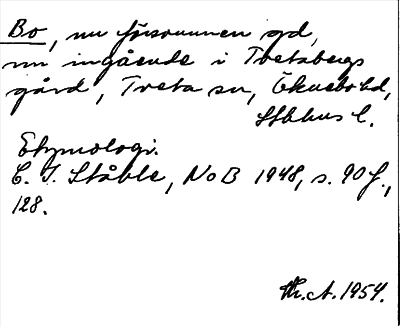 Bo, nu försvunnen gd,
nu ingående i Tvetabergs
gård, Tveta sn, Öknebo hd,
Sthlms l.
Etymologi.
C. I. Ståhle, NoB 1948, s. 90 f.,
128.
Th. A. 1954.